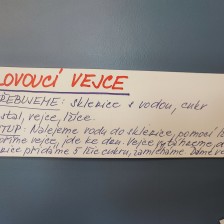 LOVOUCÍ VEJCE
ŘEBUJEME: sklenice s vodou, cukr
stal, vejce, lžíce.
TUP: Nalejeme vodu do sklenice, pomocí l
oříme vejce, jde ke dnu. Vejce
nice přidáme 5 lžic cukru, zamícháme. Dáme v